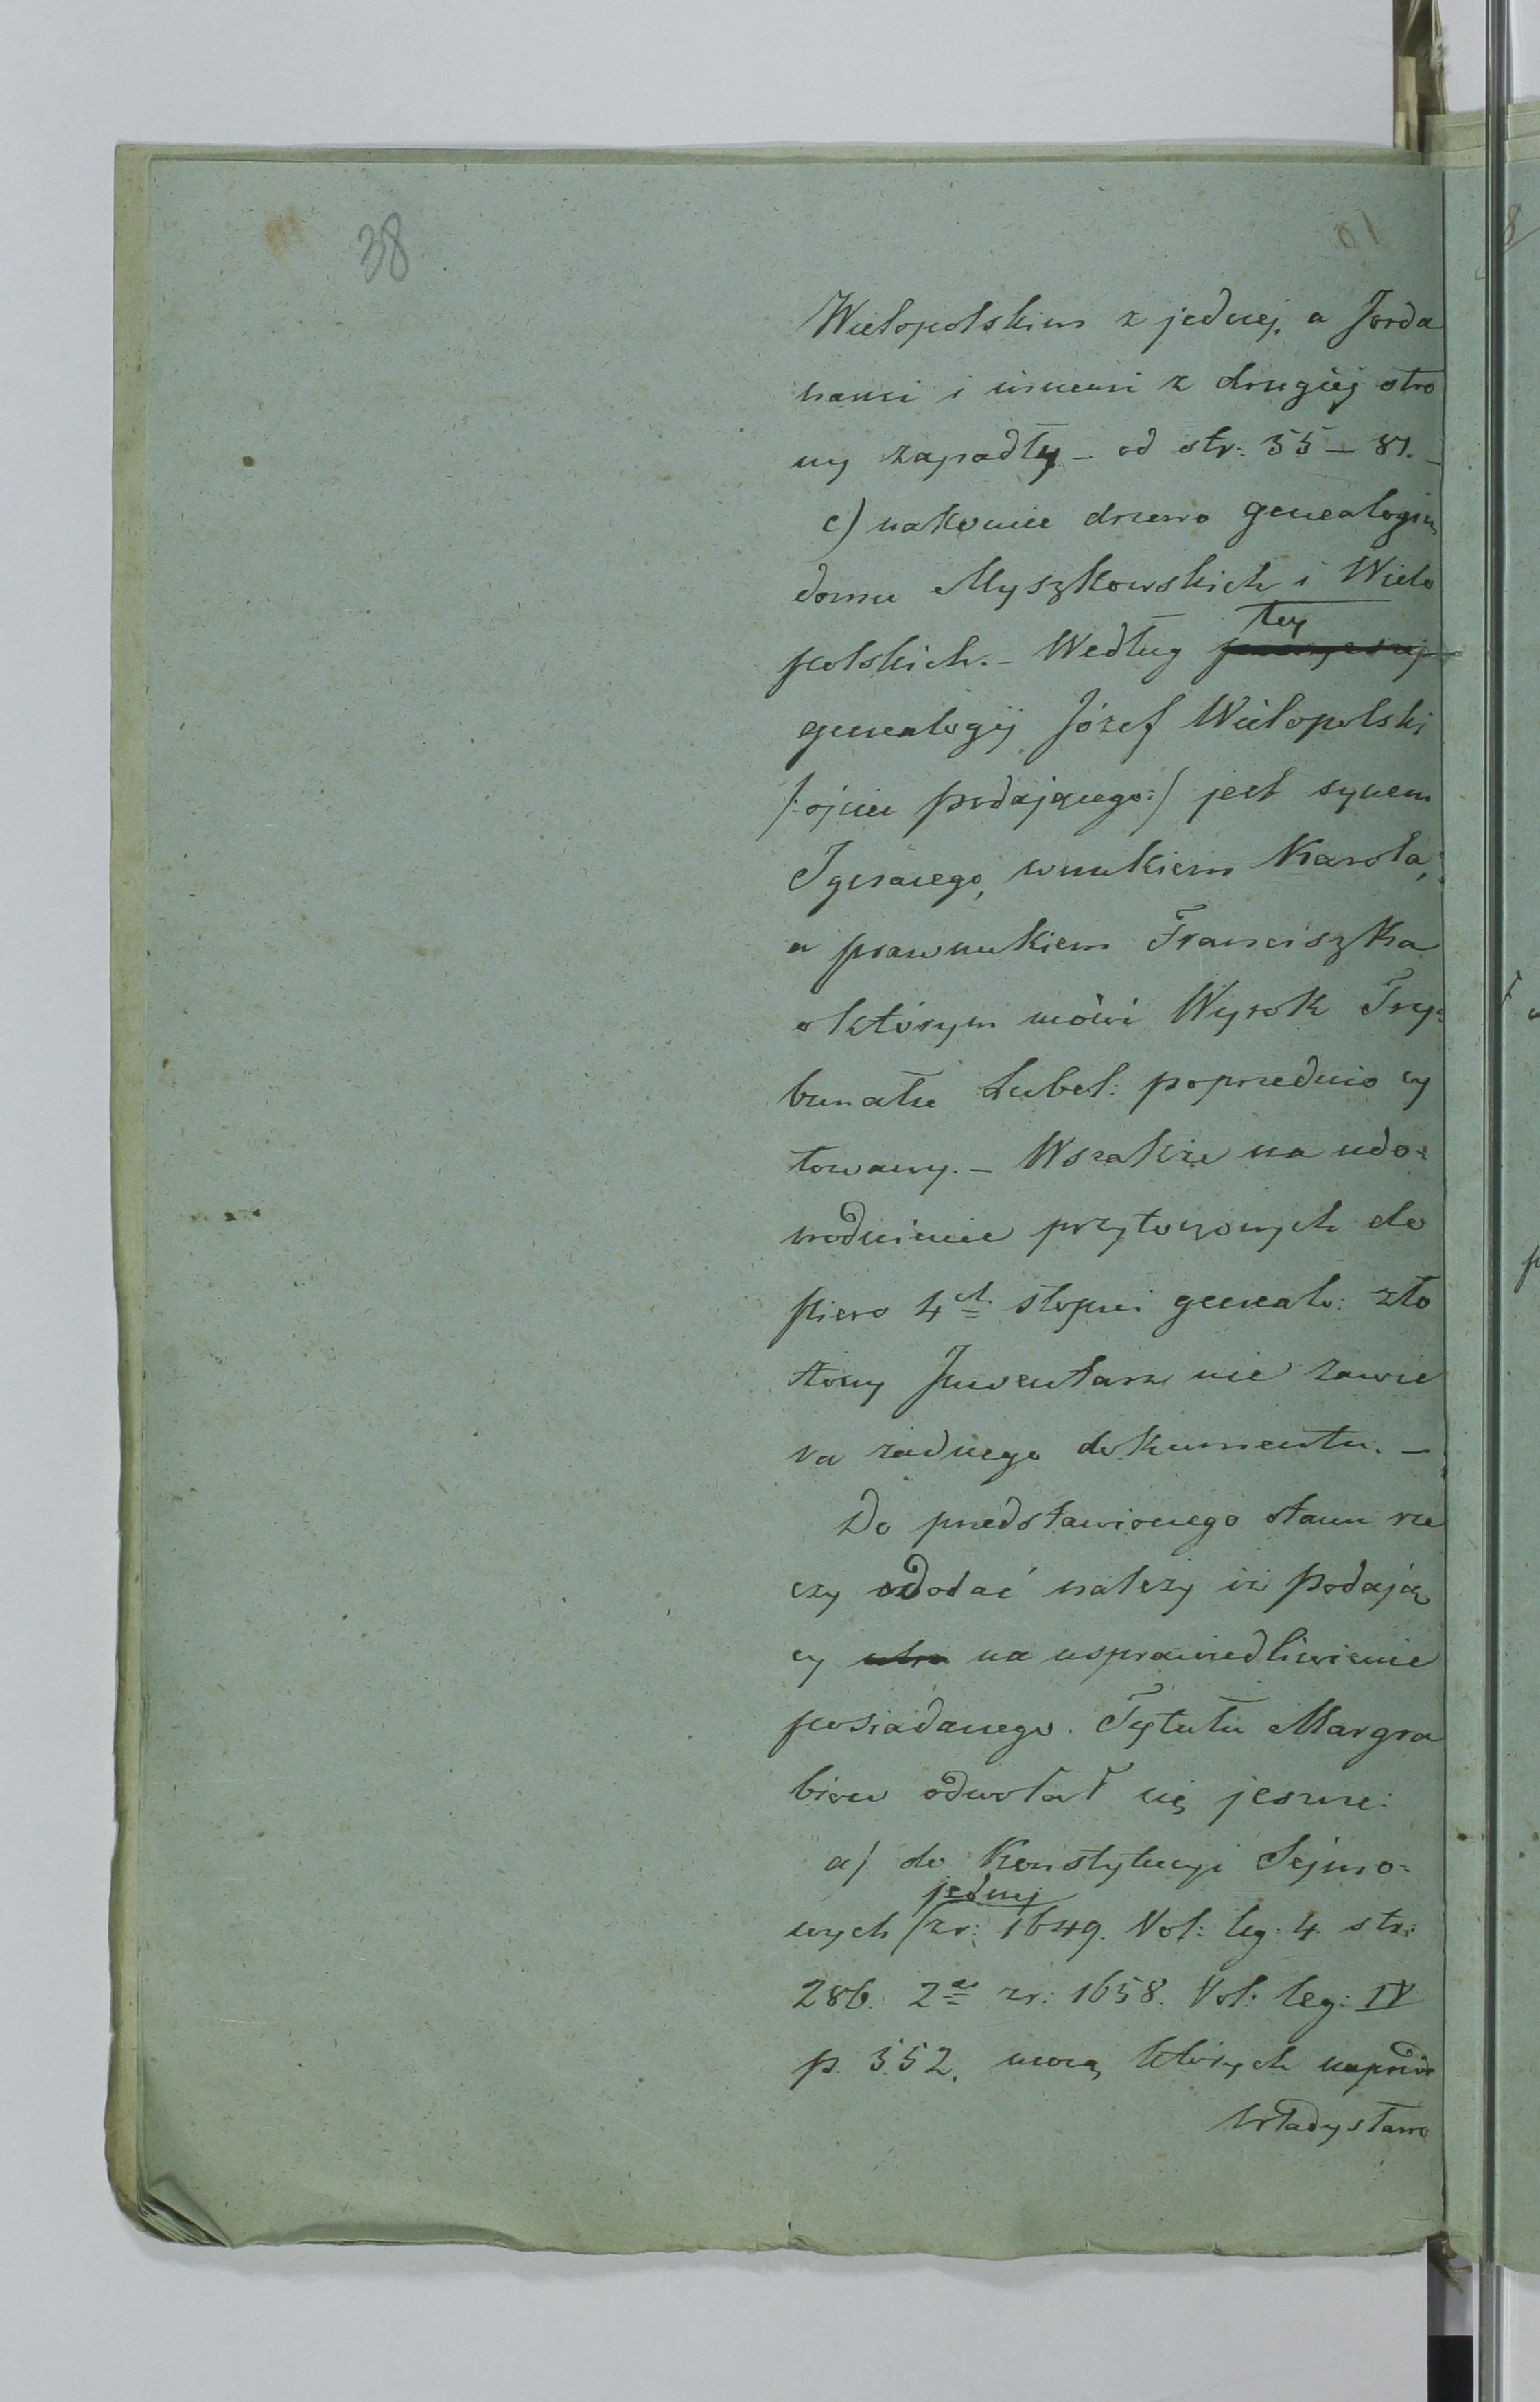 38
Wielopolskim z jednej, a Jorda
nami i innemi z drugiéj stro
ny zapadły – od str: 55 – 81. –
c) nakoniec drzewo genealogiu
domu Myszkowskich i Wielo
polskich. – Według téj
genealogij Józef Wielopolski
/: ojciec podającego :/ jest synem
Ignacego, wnukiem Karola,
a prawnukiem Franciszka
o którym mówi Wyrok Try=
bunału Lubel: poprzednio cy
towany. – Wszakże na udo=
wodnienie przytoczonych do
piero 4ch stopni genealo: zło
żony Inwentarz nie zawie
ra żadnego dokumentu. –
Do przedstawionego stanu rze
czy dodać należy iż podają
cy na usprawiedliwienie
posiadanego Tytułu Margra
biów odwołał się jeszcze:
a/ do Konstytucyi Sejmo=
jednej
wych / z r: 1649. Vol: leg: 4. str:
286. 2ej z r: 1658. Vol: leg: IV
p. 552. mocą których naprzód
Władysławo